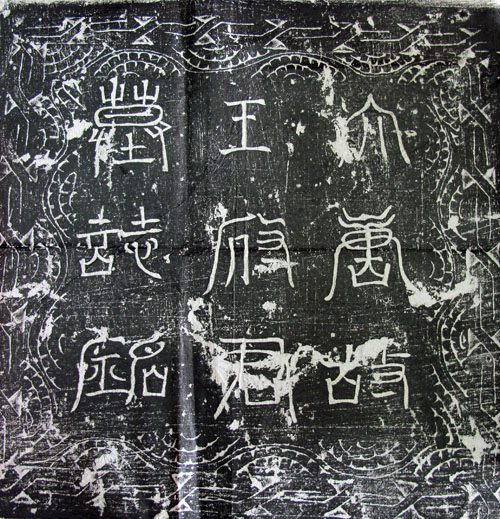 大唐故
王府君
墓誌銘